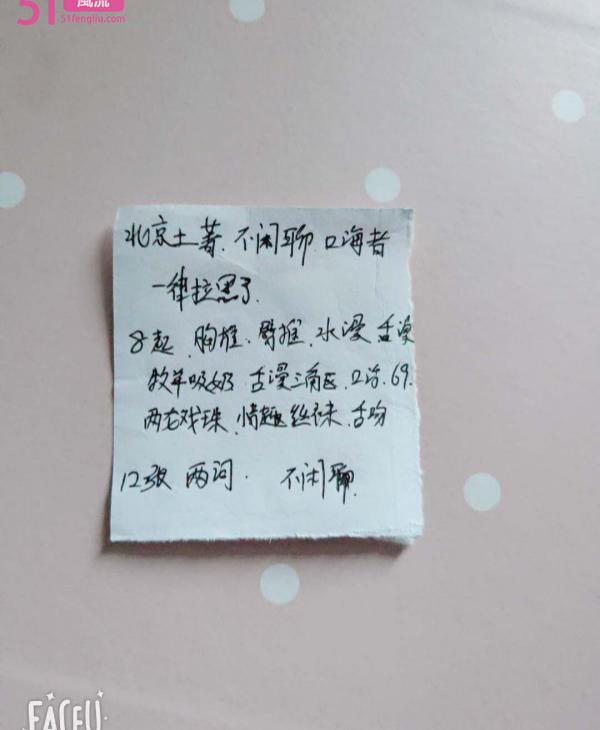 51 風流
51fengliu.com
北京土著.不闲聊.口海者
一律拉黑了.
8起.胸推.臀推.水漫舌漫
牧羊吸奶 舌漫三角区.口活.69.
两龙戏珠.情趣丝袜.舌吻
12张 两词. 不闲聊.
FACEU